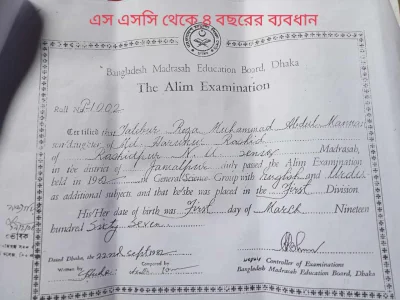 এস এসসি থেকে ৪ বছরের ব্যবধান
Bangladesh Madrasah Education Board, Dhaka
The Alim Examination
Roll No P-1002
Certified that Talibur Reza Muhammad Abdul Mannan
son/daughter of Md. Harunur Rashid
of Madrasah,
in the district of Jamalpur duly passed the Alim Examination
held in in General/Science Group with English and Urdu
as additional subjects and that he/she was placed in the First Division.
His/Her date of birth was First day of March Nineteen
hundred Sixty Seven
Dated Dhaka, the 22nd Sept
Written by
Compared by
Controller of Examinations
Bangladesh Madrasah Education Board, Dhaka